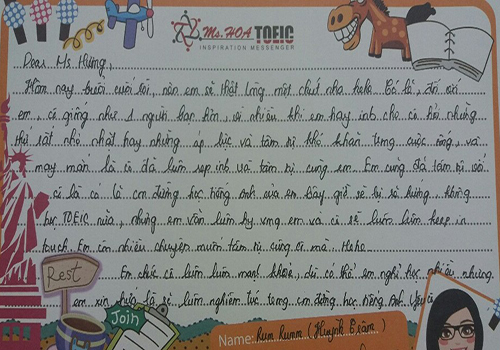 Ms. HOA TOEIC
INSPIRATION MESSENGER
Dear Ms Hương,
Hôm nay buổi cuối rồi, nên em sẽ thật lòng một chút nha hehe. Có lẽ, đối với
em, cô giống như 1 người bạn hơn, vì nhiều khi em hay inb cho cô hỏi những
thứ rất nhỏ nhặt hay những áp lực và tâm sự khó khăn trong cuộc sống, và
may mắn là cô đã luôn rep inb và tâm sự cùng em. Em cũng đã tâm sự với
cô là có lẽ con đường học tiếng Anh của em bây giờ sẽ bị rẽ hướng không
học TOEIC nữa, nhưng em vẫn luôn hy vọng em và cô sẽ luôn luôn keep in
touch. Em còn nhiều chuyện muốn tâm sự cùng cô mà. Hehe
Em chúc cô luôn luôn mạnh khỏe, dù có thể em nghỉ học nhiều nhưng
em xin hứa là sẽ luôn nghiêm túc trong con đường học tiếng Anh
Rest
Join
Name: Rum (Huỳnh Trâm)